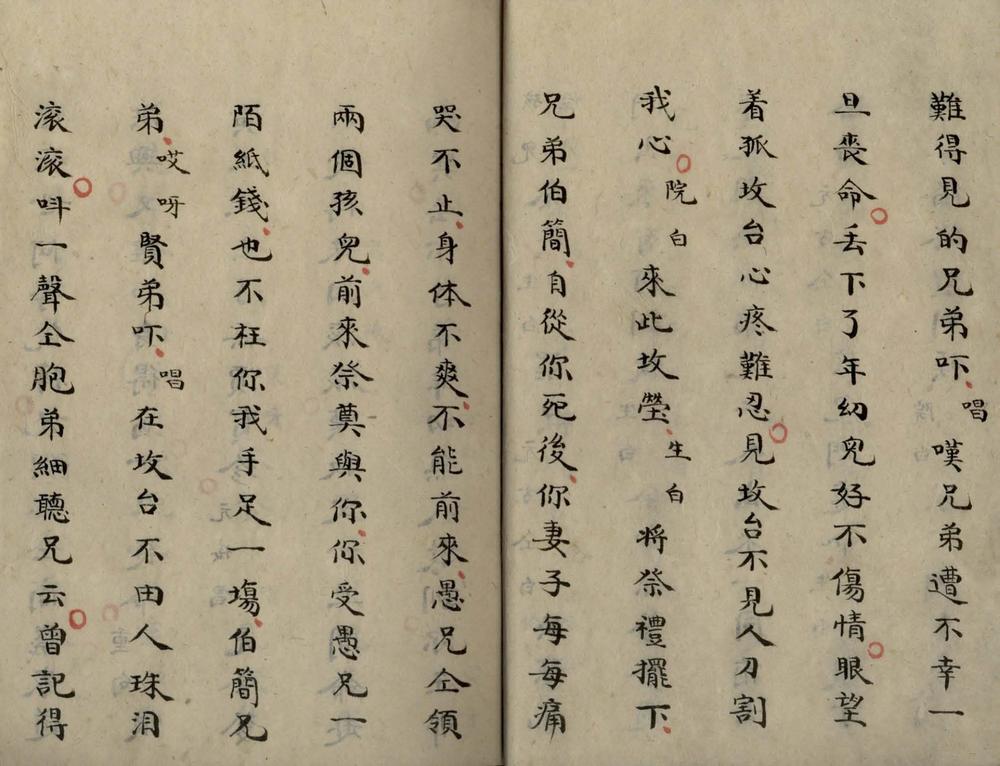 難得見的兄弟吓唱嘆兄弟遭不幸一
旦喪命丢下了年幼兒好不傷情眼望
着孤坟台心疼難忍見坟台不見人刀割
我心院白來此坟塋生白將祭禮擺下
兄弟伯簡自從你死後你妻子每每痛
哭不止身体不爽不能前來愚兄仝領
兩個孩兒前來祭奠與你你受愚兄一
陌紙錢也不枉你我手足一場伯簡兄
弟哎呀賢弟吓唱在坟台不由人珠泪
滚滚呌一聲仝胞弟細聽兄云曾記得